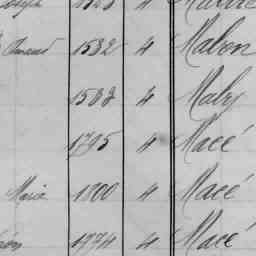 1532 4 Mabon
1533 4 Maby
1795 4 Macé
Marie 1800 4 Macé
1774 4 Macé